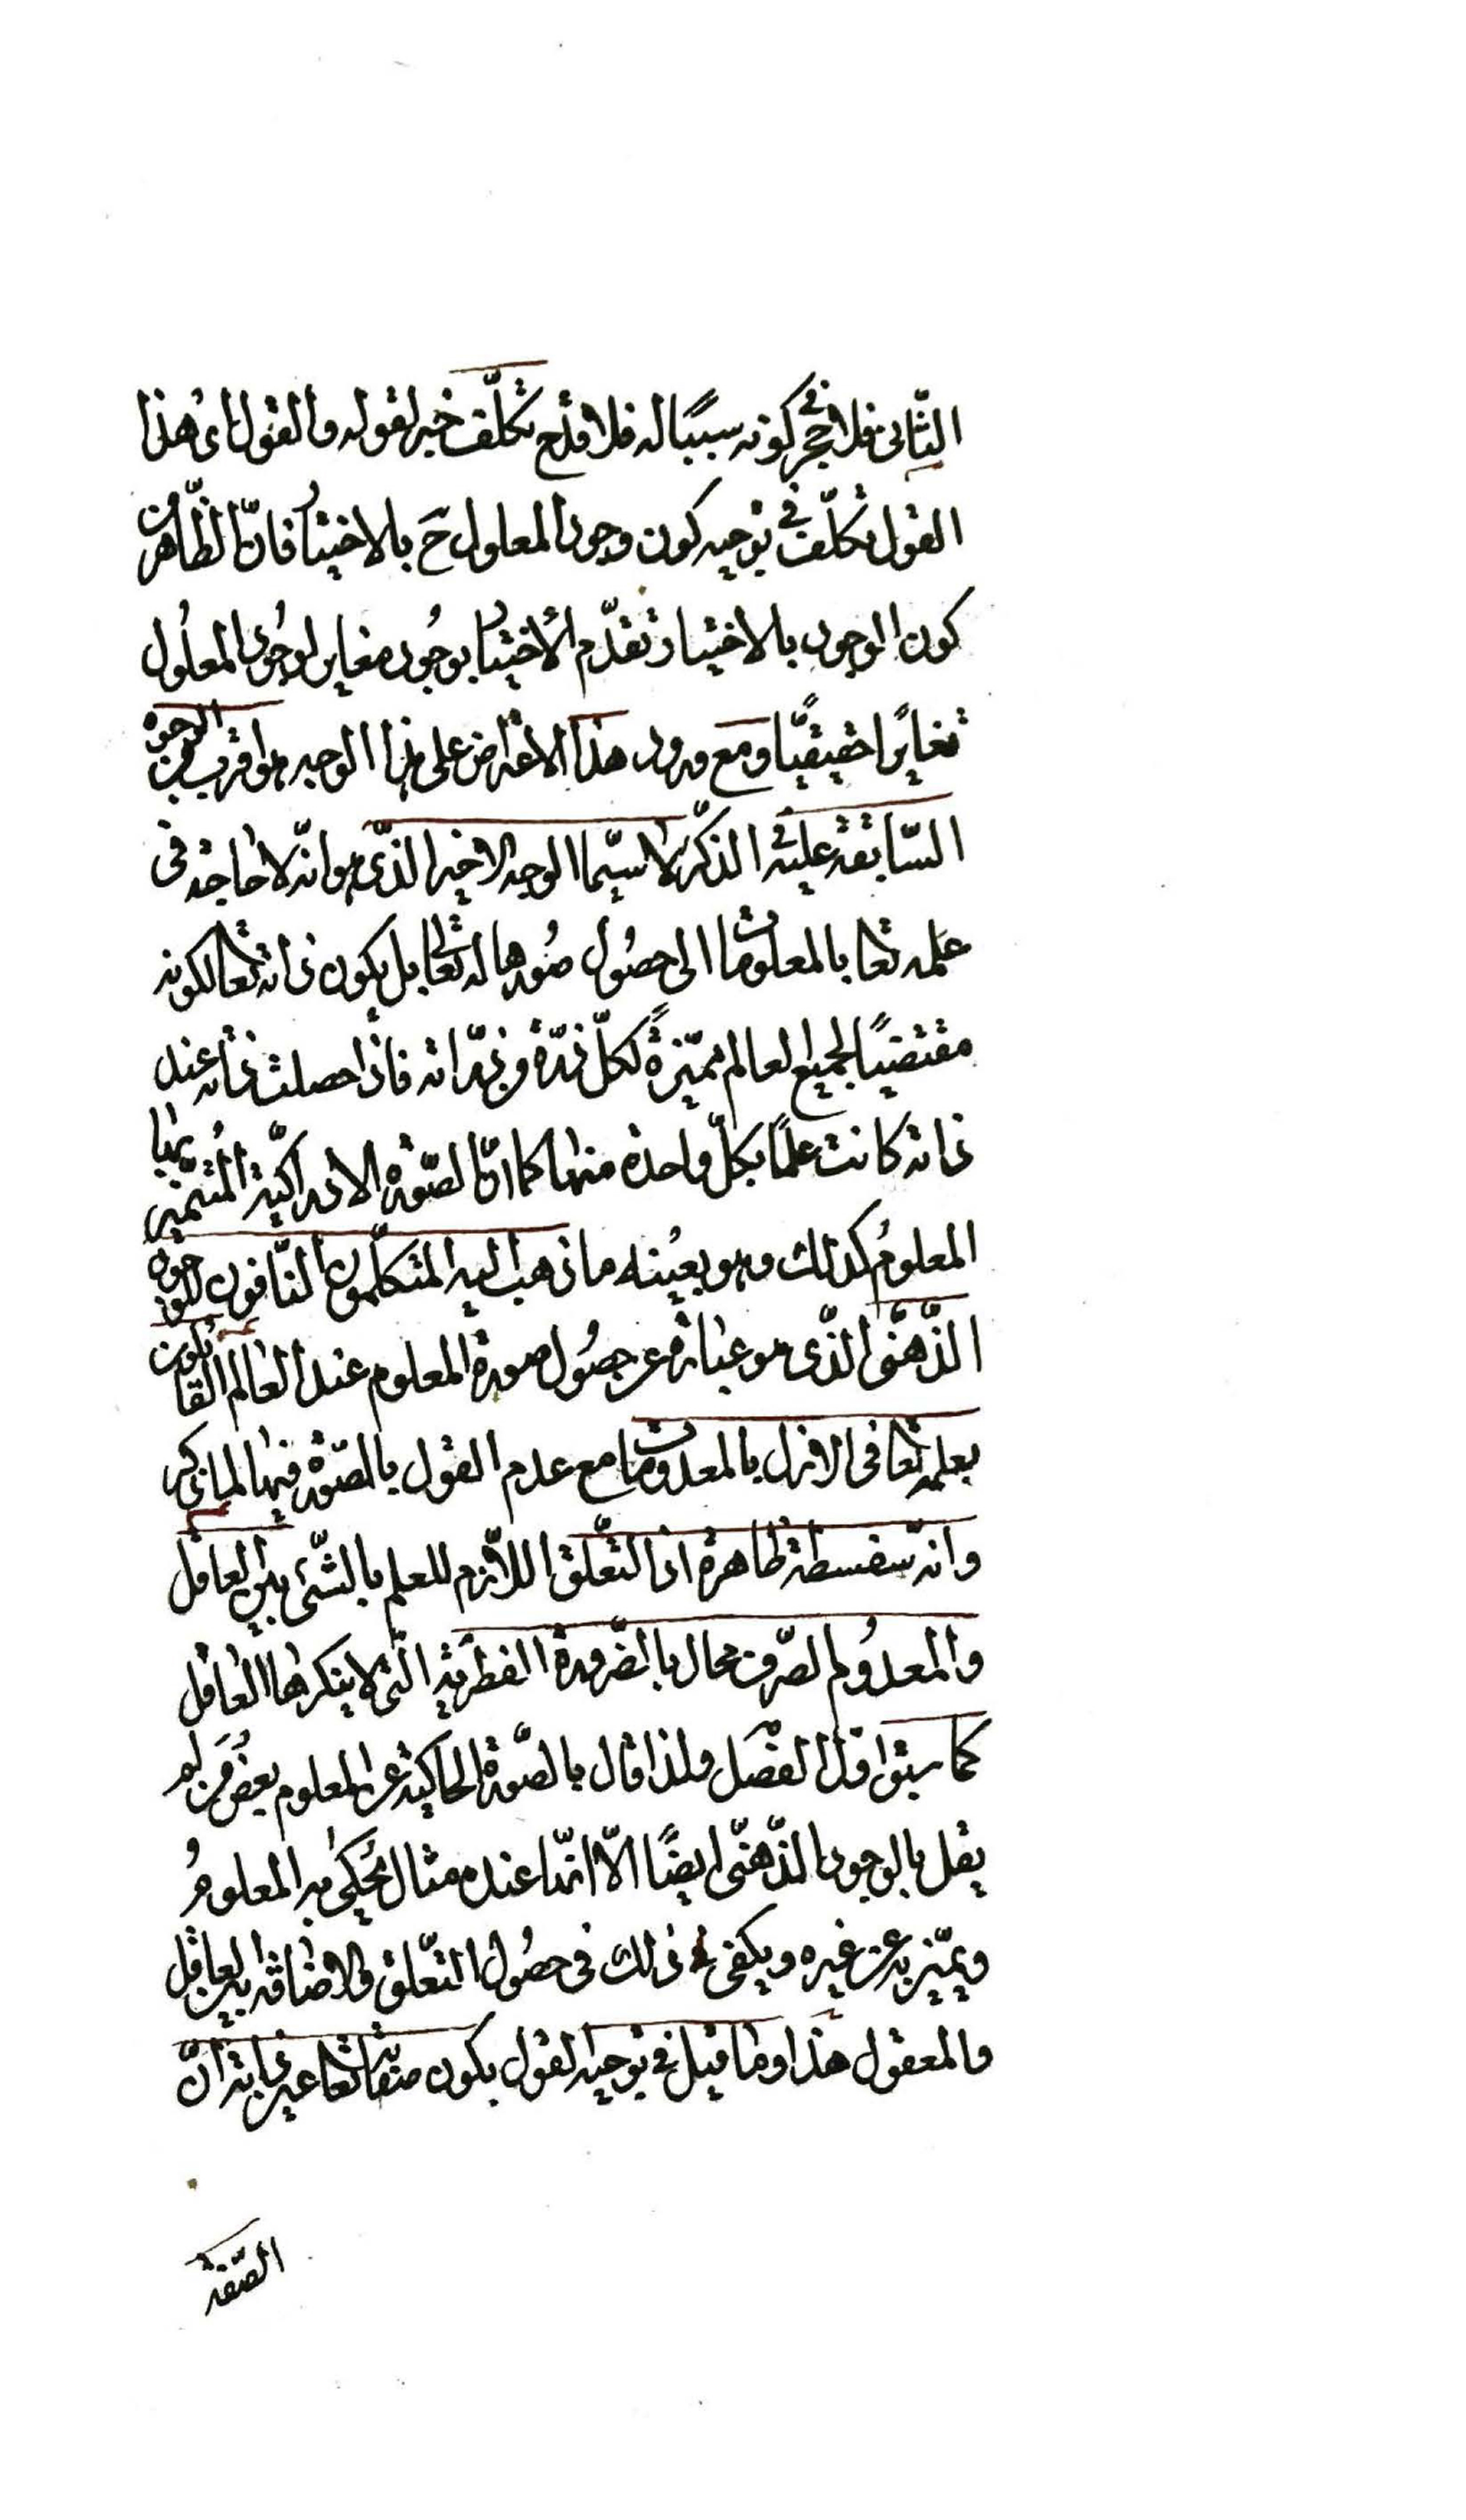 الثّاني فلا في كونه سببًا له فلا قدح تكلّف خبر لقوله والقول اى هذا
القول تكلّف في توجيه كون وجود المعلول ح بالاختيار فانّ الظّاهر من
كون الوجود بالاختيار تقدّم الاختيار بوجُود مغاير لوجُود المعلُول
تغايرًا حقيقيًّا ومع ورود هذا الاعتراض على هذا الوجه هو اقرب من الوجوه
السّابقة عليه الذكر لا سيّما الوجه الاخير الذّى هو انّه لا حاجة فى
علمه تعا بالمعلومات الى حصُول صُورها له تعا بل يكون ذاته تعا لكونه
مقتضيًا لجميع العالم مميّزةً لكلّ ذرّة وذرّاته فاذا حصلت ذاته عند
ذاته كانت علمًا بكلّ واحدة منها كما انّ الصّورة الادراكيّة المُتميّز بها
المعلومُ كذلك وهو بعينه ما ذهب اليه المتكلّمون النّافون للوجود
الذّهنّى الذّى هو عبارة عن حصُول صورة المعلوم عند العالم القائلون
بعلمه تعا فى الازل بالمعدومات مع عدم القول بالصّورة فيها لما ذكر
وانه سفسطة ظاهرة اذ التعّلق اللّازم للعلم بالشّئ بين العاقل
والمعدُوم الصّرف محال بالضّرورة الفطريّة الّتى لا ينكرها العاقل
كما سبق اوّل الفصَل ولذا قال بالصّورة الحاكية عن المعلوم بعضُ مَن لم
يقل بالوجود الذّهنّى ايضًا الّا انهّا عنده مثال يُحكى به المعلومُ
ويميّز به عن غيره ويكفى ذلك فى حصُول التعّلق والاضافة بين العاقل
والمعقول هذا وما قيل في توجيه القول بكون صفاته تعا عين ذاته انّ
الصّفة